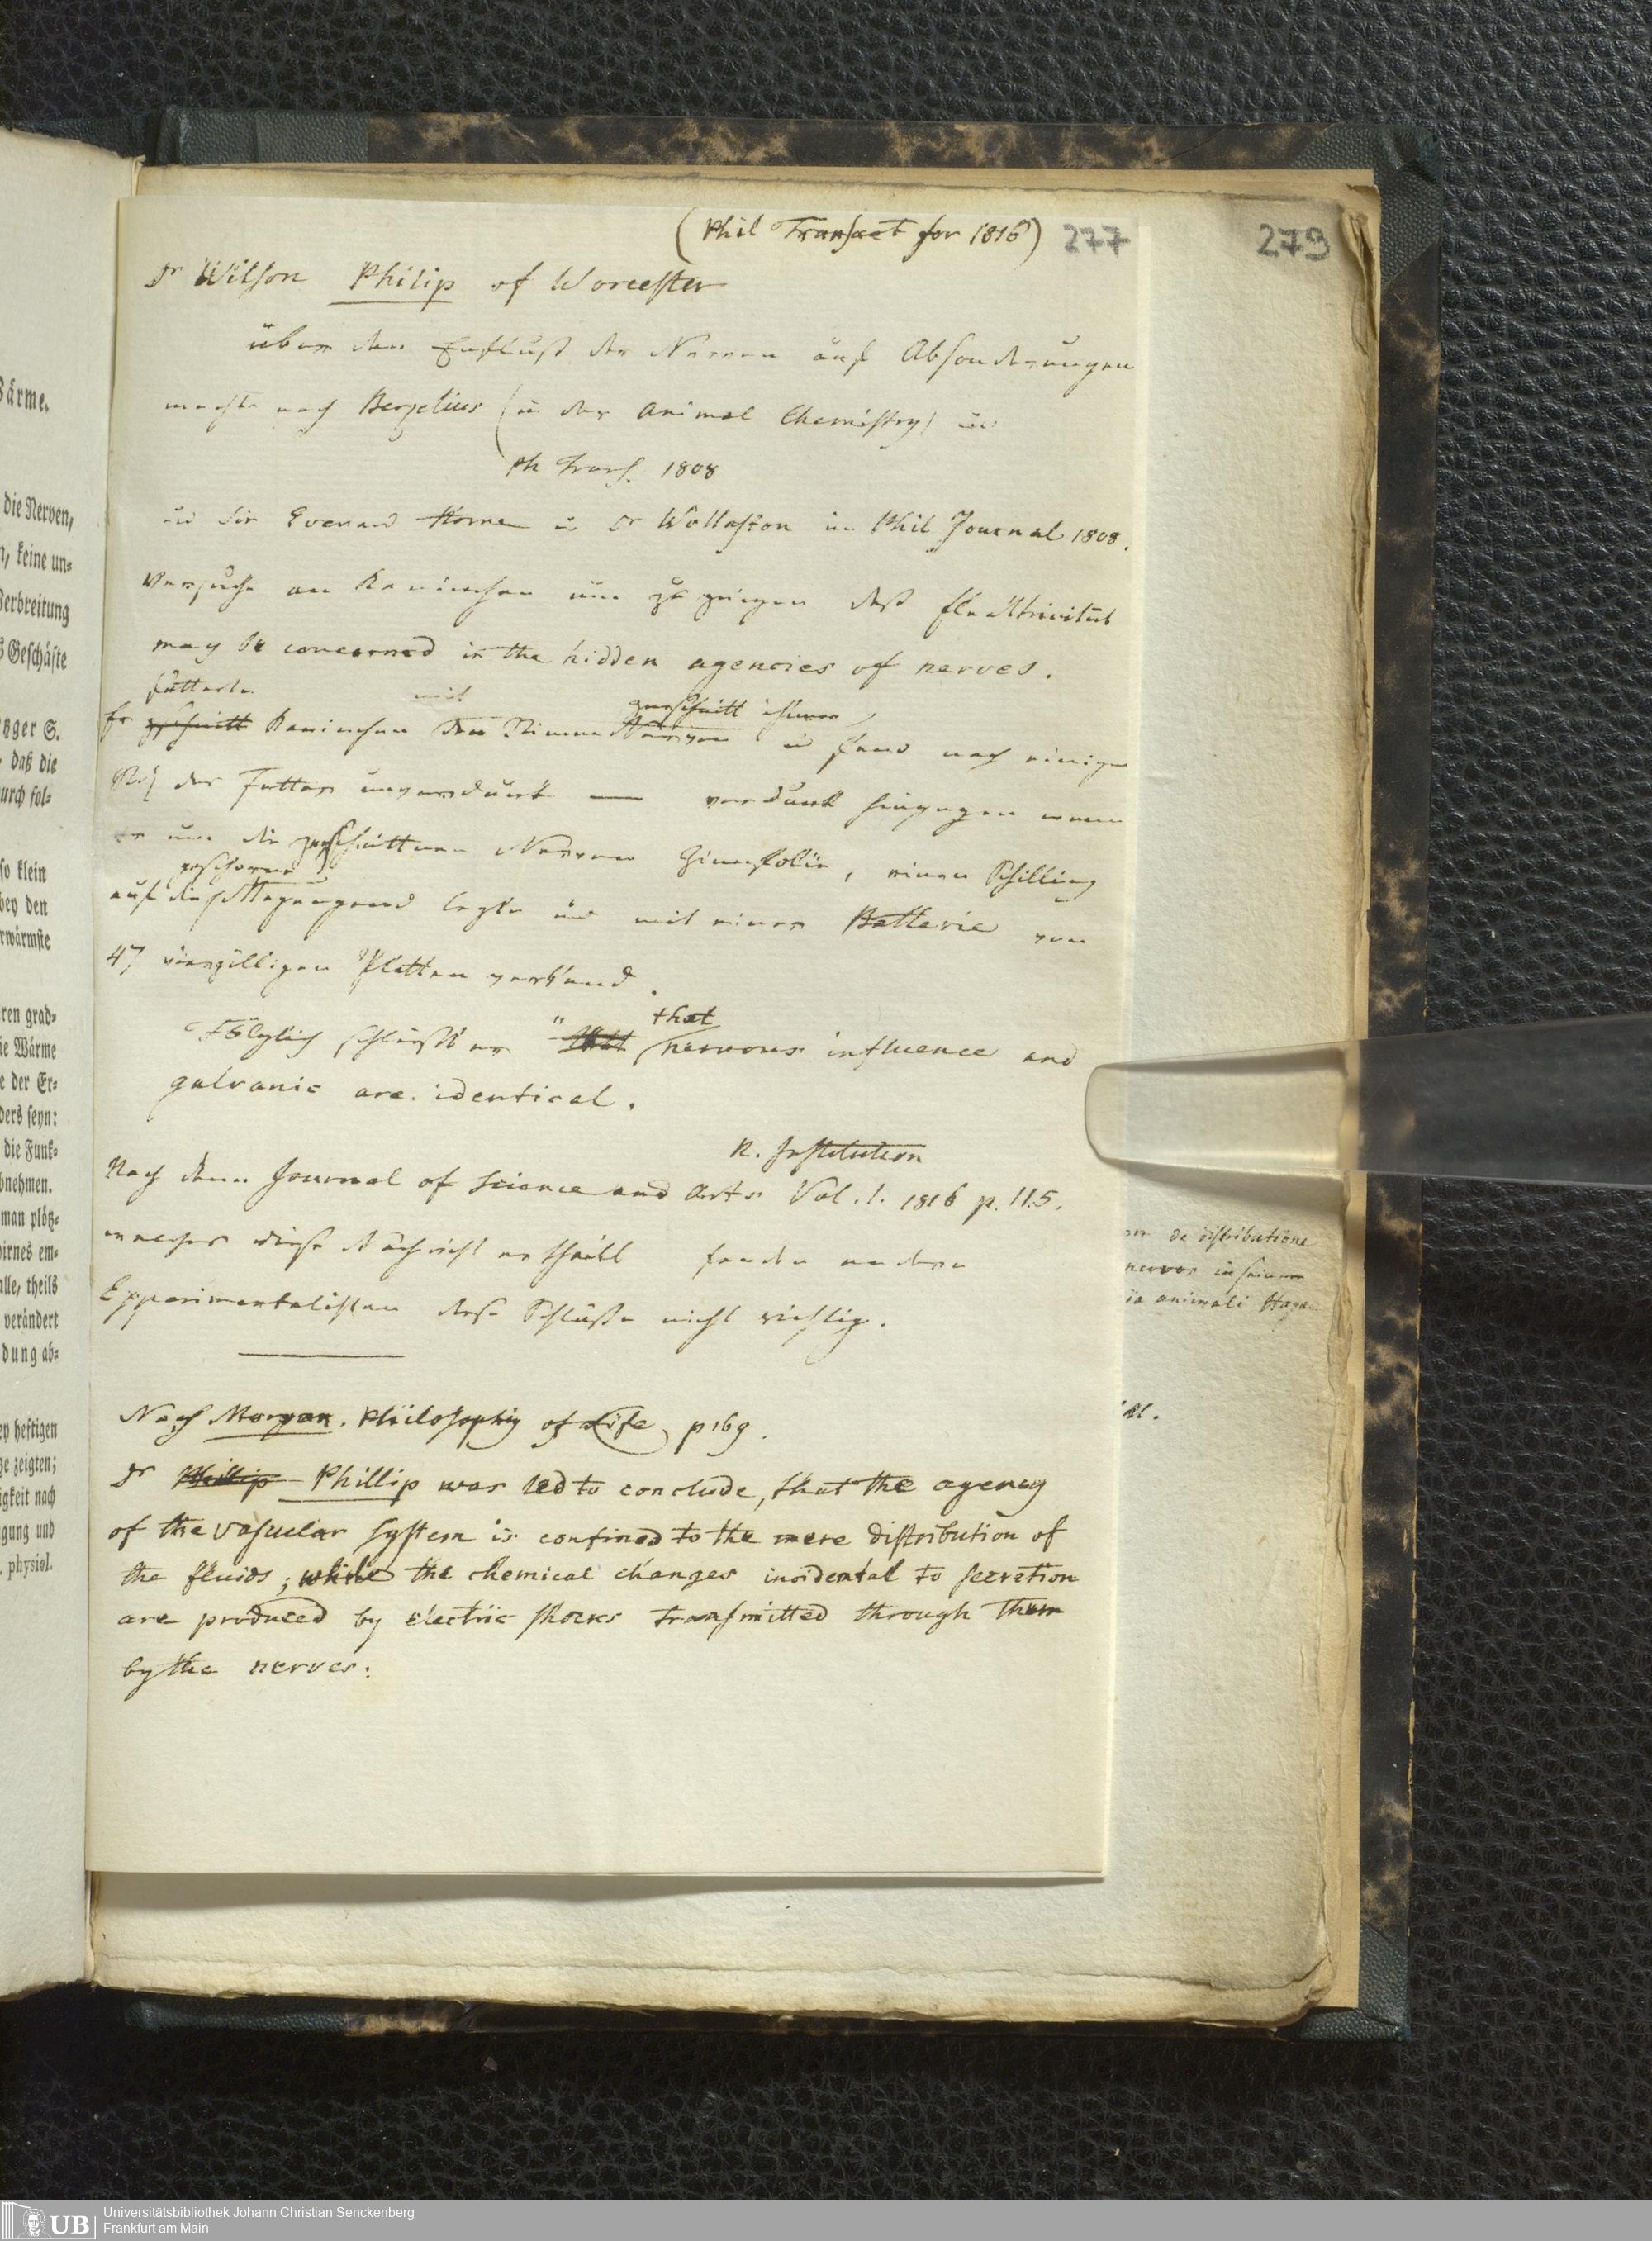 (Phil Transact for 1816) 277
279
Dr Wilson Philip of Worcester
über den Einfluß der Nerven auf Absonderungen
machte nach Berzelius (in der Animal Chemistry) in
Ph Trans. 1808
und Sir Everard Home u Dr Wollaston im Phil Journal 1808.
Versuche an Kaninchen um zu zeigen daß Electricität
may be concerned in the hidden agencies of nerves.
fütterte mit zerschnitt
Er zerschnitt Kaninchen den Stimm Nerven und fand nach einiger
Zeit das Futter unverdaut — verdaut hingegen wenn
er um die zerschnittnen Nerven Zinnfolie, einen Schilling
geschorne
auf die Magengegend legte und mit einer Batterie von
47 vierzölligen Platten verband.
Folglich schließt er " that that nervous influence and
galvanic are identical.
R. Institution
Nach dem Journal of Science and Arts Vol. 1. 1816 p. 115.
welches diese Nachricht ertheilt fanden andere
Experimentalisten diese Schlüße nicht richtig.
Nach Morgan. Philosophy of Life p 169.
Dr Phillip Phillip was led to conclude, that the agency
of the vascular system is confined to the mere distribution of
the fluids; while the chemical changes incidental to secretion
are produced by electric shocks transmitted through them
by the nerves.
de distributione
nervos
animali
Wärme.
die Nerven,
keine un-
Verbreitung
Geschäfte
tzger S.
daß die
urch fol-
so klein
bey den
rwärmste
ren grad-
ie Wärme
e der Er-
ders seyn:
die Funk-
bnehmen.
man plötz-
irnes em-
alle, theils
verändert
dung ab-
ey heftigen
ge zeigten;
igkeit nach
gung und
physiol.
UB Universitätsbibliothek Johann Christian Senckenberg
Frankfurt am Main